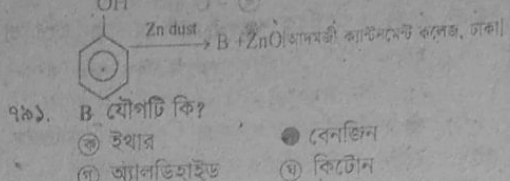 OH
Zn dust B + ZnO [আদমজী ক্যান্টনমেন্ট কলেজ, ঢাকা]
৭৯১. B যৌগটি কি?
ক ইথান্র বেনজিন
গ অ্যালডিহাইড ঘ কিটোন